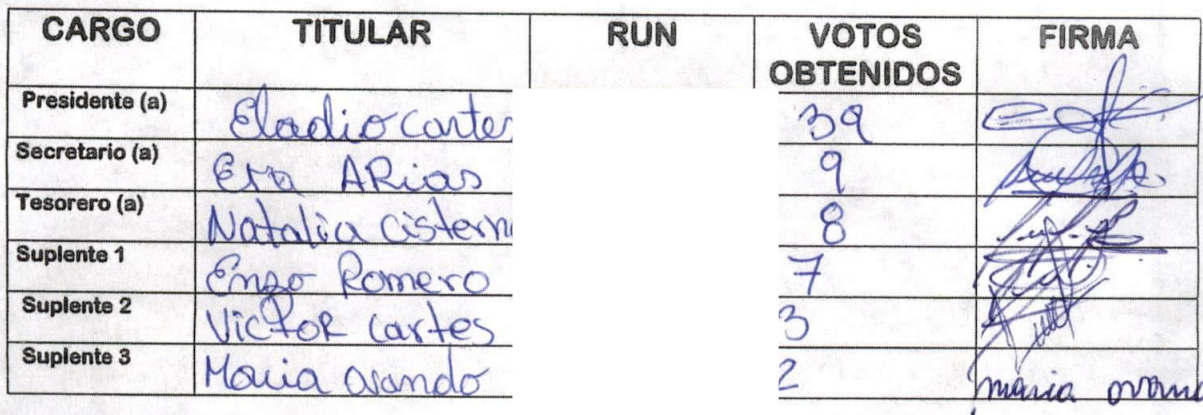 CARGO TITULAR RUN VOTOS OBTENIDOS FIRMA
Presidente (a) Eladio Cartes 39
Secretario (a) Eva ARias 9
Tesorero (a) Natalia Cistern 8
Suplente 1 Enzo Romero 7
Suplente 2 Victor Cartes 3
Suplente 3 Maria 2 maria